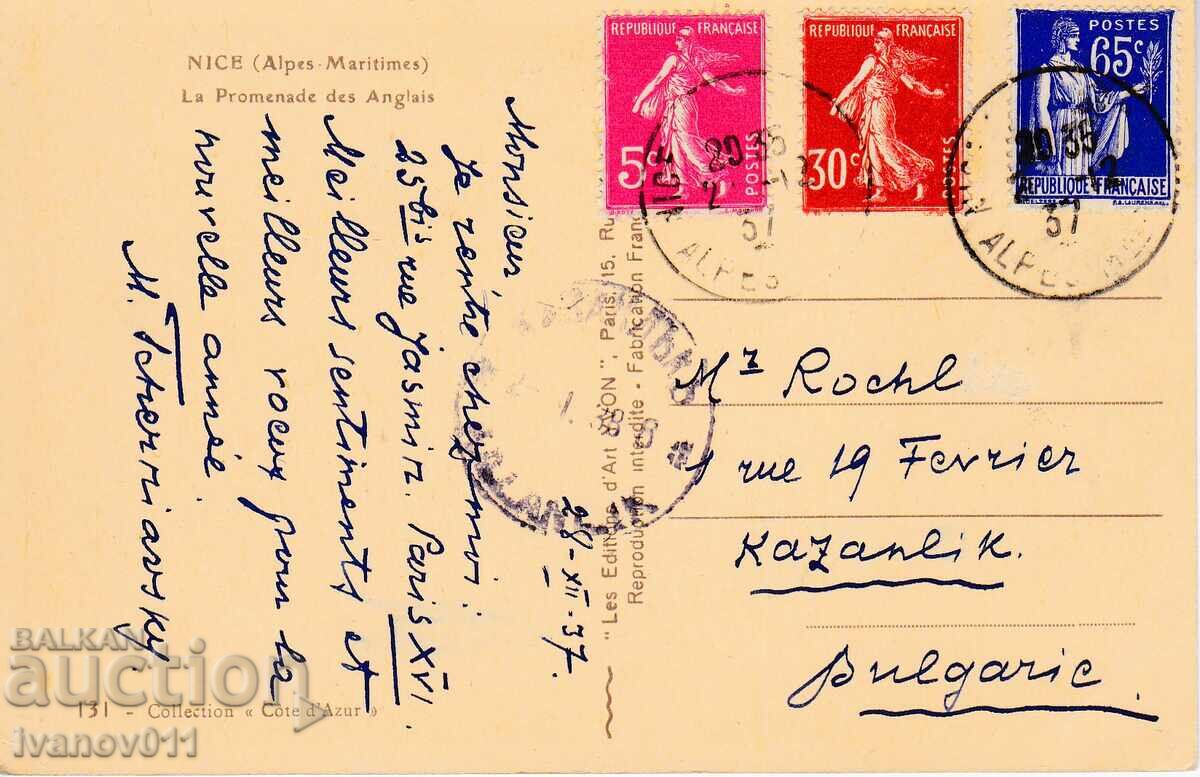 NICE (Alpes-Maritimes)
La Promenade des Anglais
REPUBLIQUE FRANÇAISE
5c
POSTES
REPUBLIQUE FRANÇAISE
30c
POSTES
POSTES
65c
REPUBLIQUE FRANÇAISE
NICE
20 35
2 -12
37
ALPES
20 35
-12
37
ALPES M
КАЗАНЛЪКЪ
KAZANLIK
28-XII-37.
Monsieur
Je rentre chez moi:
25 bis rue Jasmin. Paris XVI.
Meilleurs sentiments et
meilleurs voeux pour la
nouvelle année.
M. Tcherniavsky.
"Les Editions d'Art YVON", Paris, 15, Ru
Reproduction Interdite - Fabrication Franç
Mr Rochl
1 rue 19 Fevrier
Kazanlik.
Bulgarie.
131 - Collection « Côte d'Azur »
BALKAN
auction
ivanov011